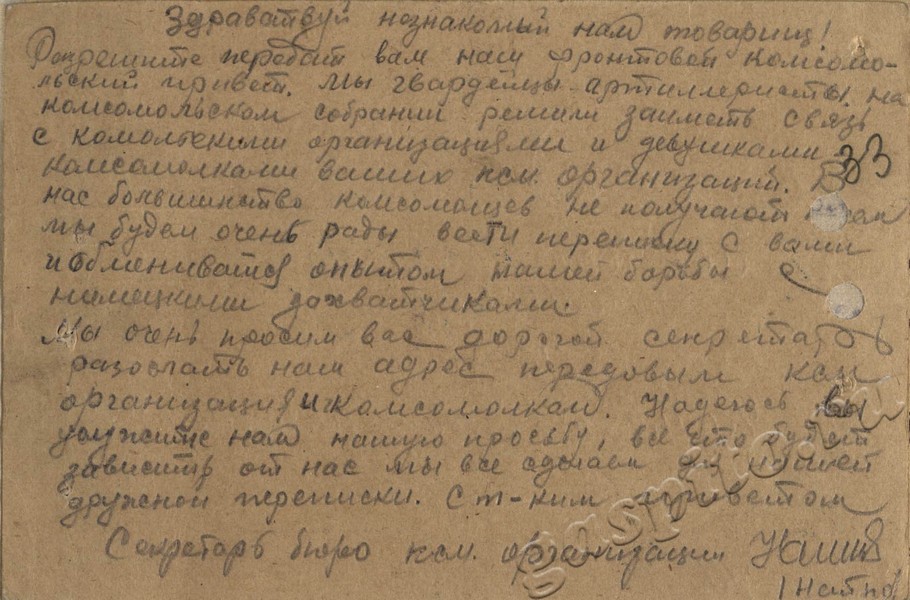 Здраватвуй незнакомый нам товарищ!
Разрешите передат вам наш фронтовой комсомо-
льский привет. Мы гвардейцы артиллеристы на
комсомольском собрании решили заиметь связь
с комольскими организациями и девушками
комсомолками ваших ксм. организаций. В 33
нас большинство комсомольцев не получают
мы будем очень рады вести переписку с вами
и обмениватся опытом нашей борьбы с
немецкими захватчиками.
Мы очень просим вас дорогой секретарь
разослать наш адрес передовым ксм
организация и комсомолкам. Надеюсь вы
услужите нам нашую просьбу, все что будет
зависить от нас мы все сделаем для нашей
дружной переписки. С т-ким приветом
Секретарь бюро ксм. организации